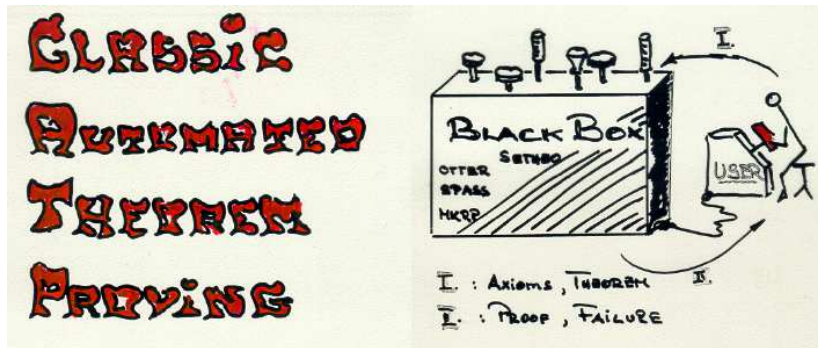 Classic
Automated
Theorem
Proving
I.
BLACK BOX
SETHEO
OTTER
SPASS
MKRP
USER
II.
I. : AXIOMS, THEOREM
II. : PROOF, FAILURE